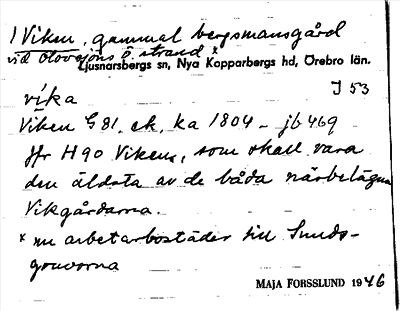 1 Viken, gammal bergsmansgård
vid Olovsjöns ö. strand x
Ljusnarsbergs sn, Nya Kopparbergs hd, Örebro län.
J 53
víka
Viken G81. ek, ka 1804 - jb 469
Jfr H90 Viken, som skall vara
den äldsta av de båda närbelägna
Vikgårdarna.
x nu arbetarbostäder till Sunds-
gruvorna
MAJA FORSSLUND 1946